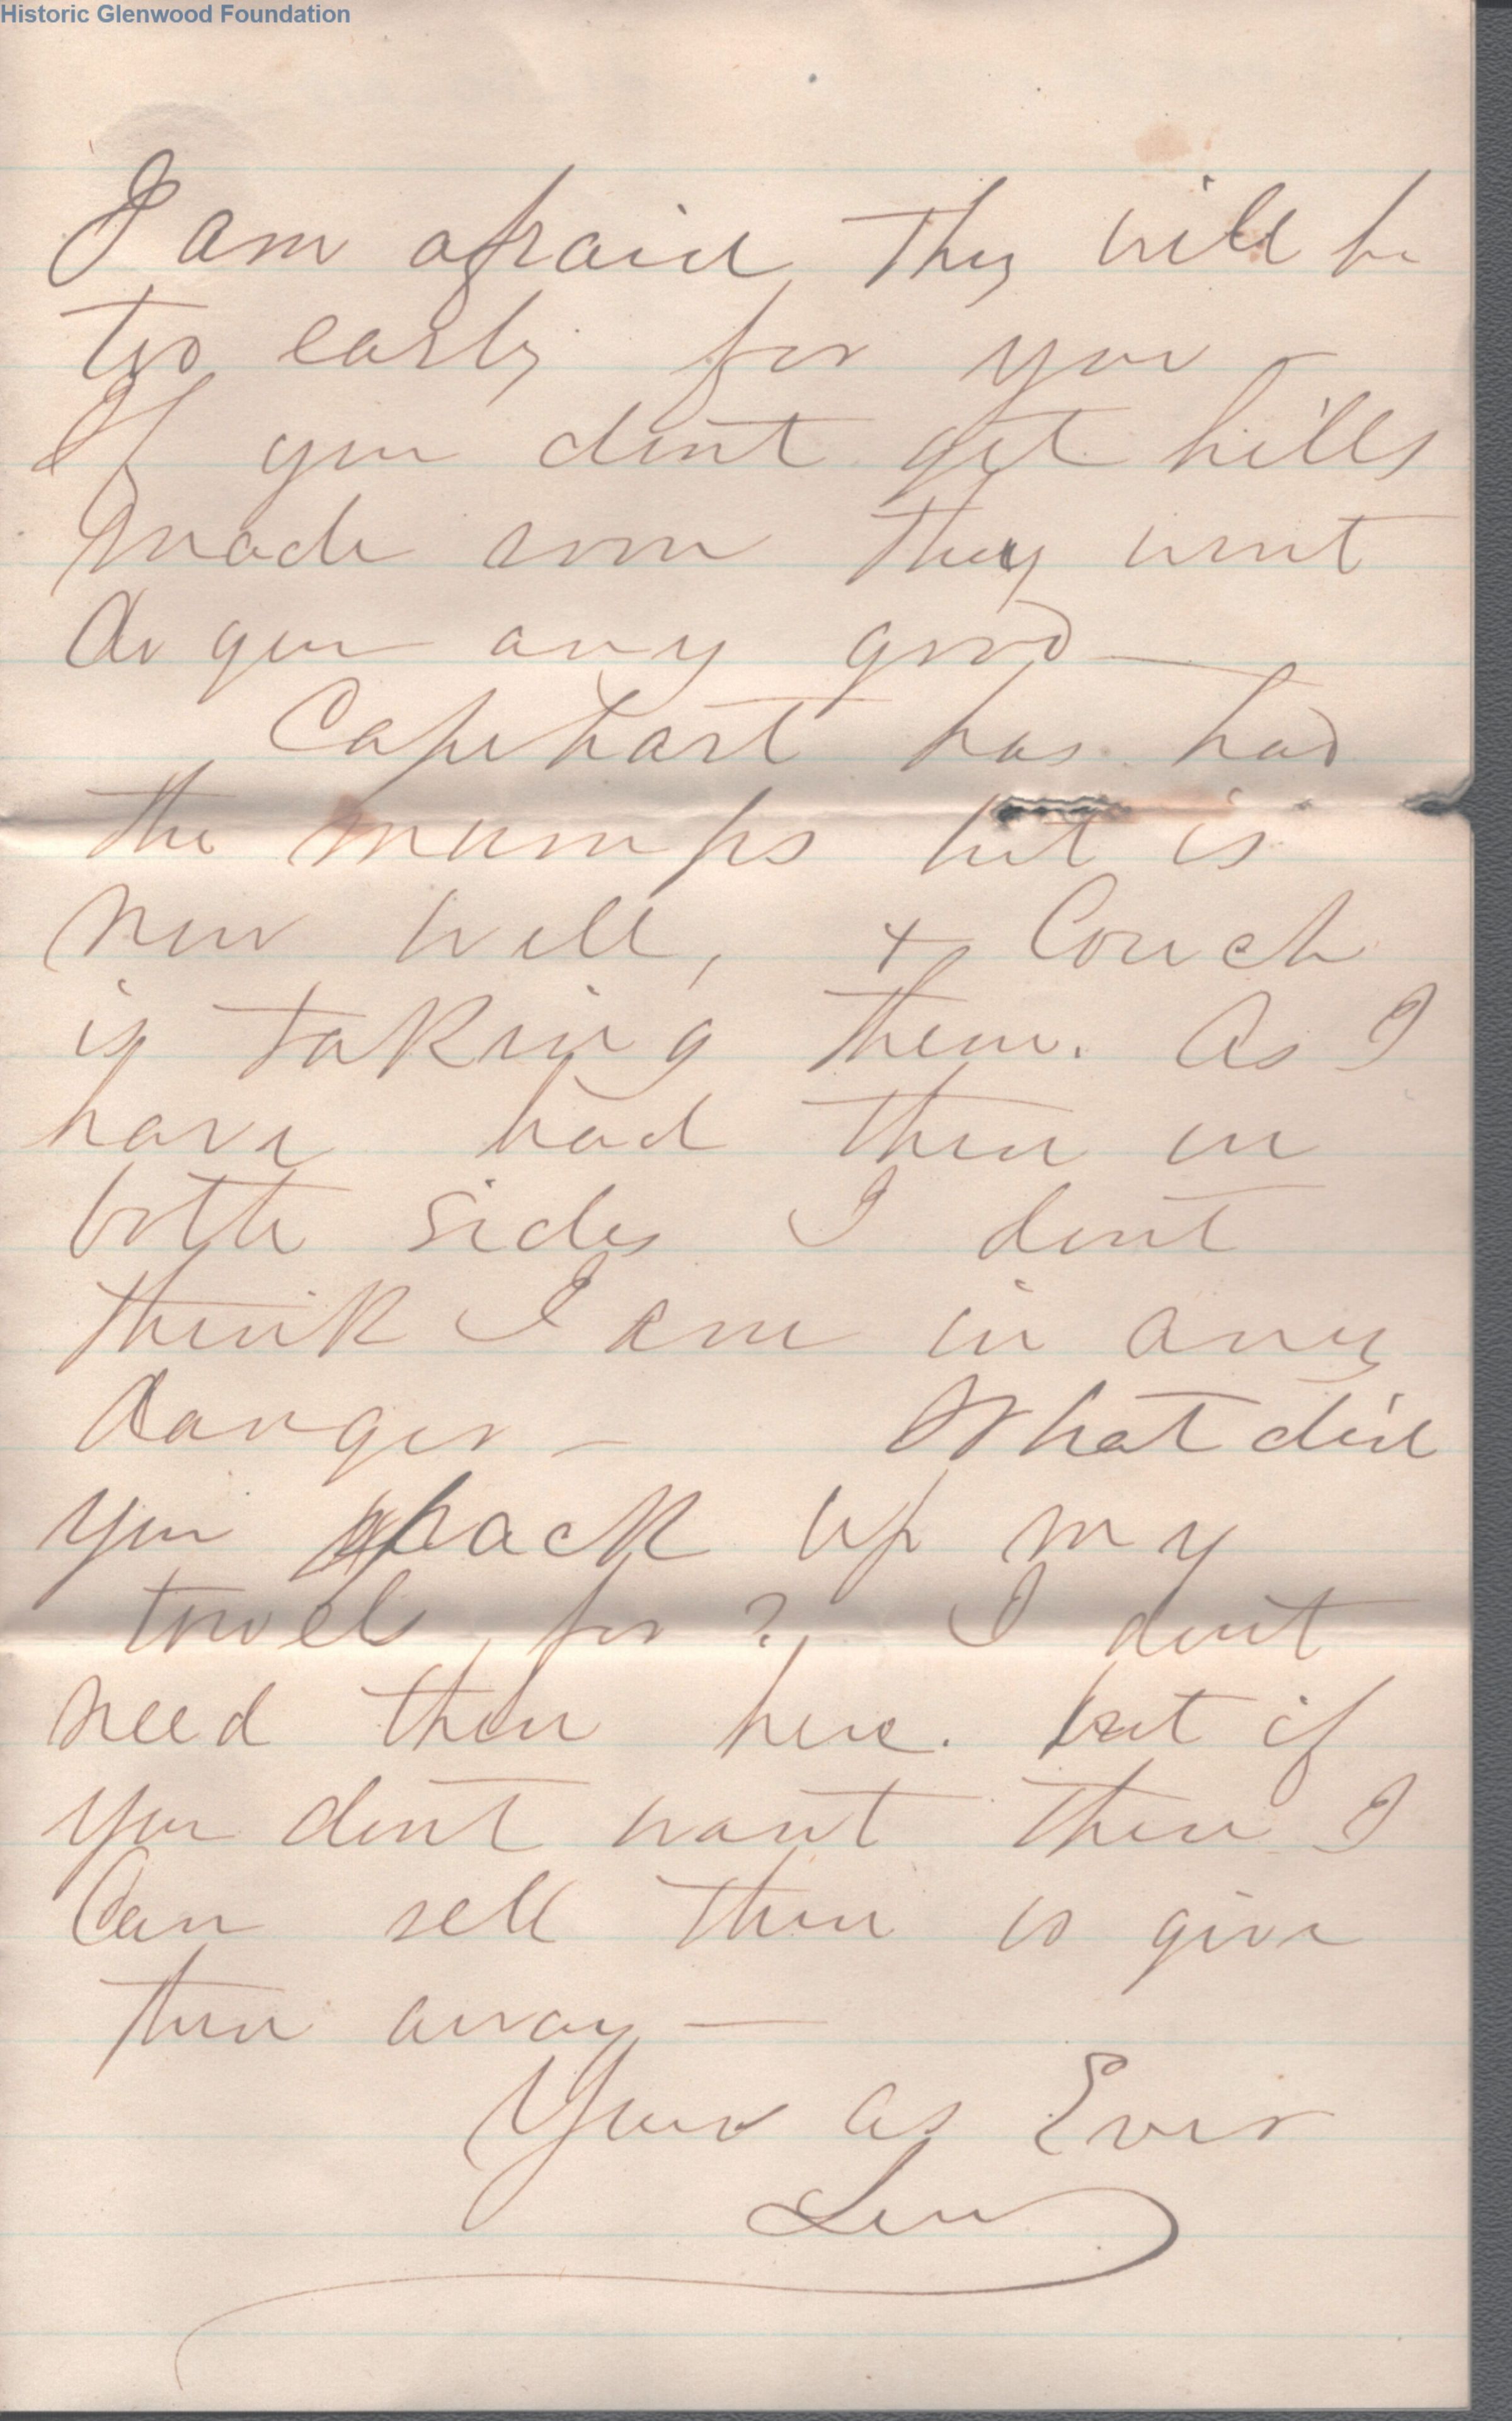 Historic Glenwood Foundation
I am afraid they will be
too early for you –
If you dont get hills
made soon they wont
do you any good —
Capehart has had
the mumps but is
now well, & Couch
is taking them. As I
have had them on
both sides I dont
think I am in any
danger – What did
you pack up my
towels for? I dont
need them here. but if
you dont want them I
Can sell them or give
them away —
Yours as Ever
Lew